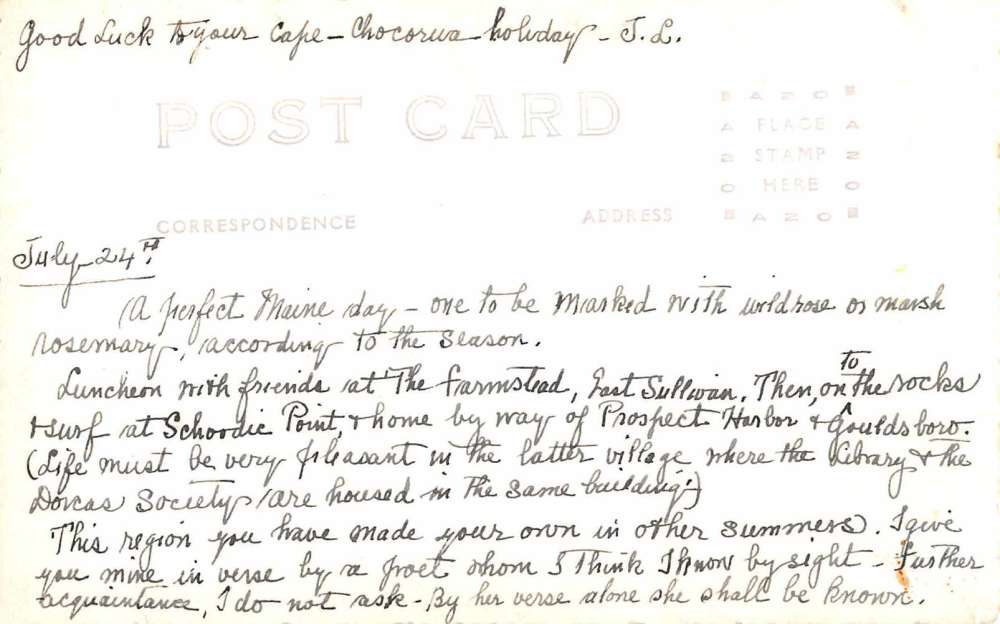 Good Luck to your Cape - Chocorua - holiday - J.L.
POST CARD
AZO
PLACE
STAMP
HERE
AZO
CORRESPONDENCE
ADDRESS
July 24th.
A perfect Maine day - one to be marked with wild rose or marsh
rosemary, according to the season.
Luncheon with friends at The Farmstead, East Sullivan. Then, on to the rocks
& surf at Schoodic Point, & home by way of Prospect Harbor & Gouldsboro.
(Life must be very pleasant in the latter village where the Library & the
Dorcas Society are housed in the same building!)
This region you have made your own in other summers. I give
you mine in verse by a poet whom I think I know by sight - Further
acquaintance, I do not ask - By her verse alone she shall be known.